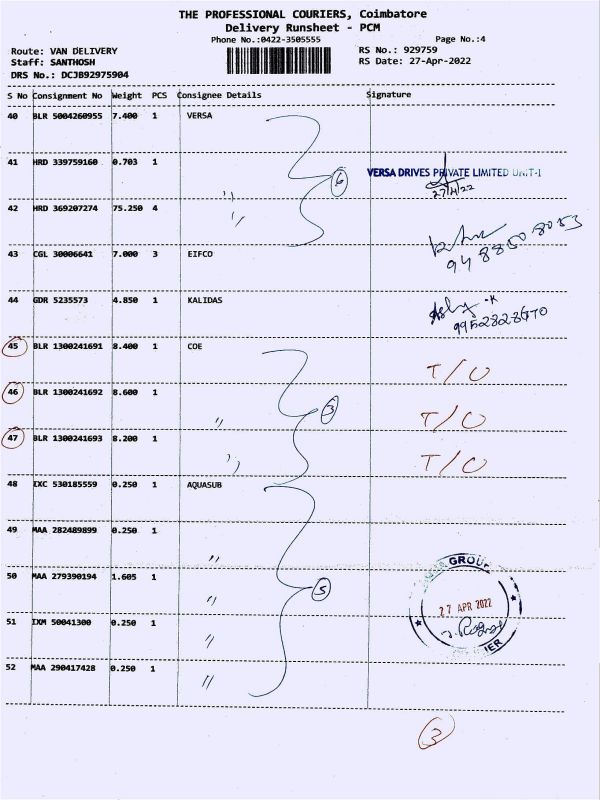 THE PROFESSIONAL COURIERS, Coimbatore
Delivery Runsheet - PCM
Phone No.:0422-3505555 Page No.:4
Route: VAN DELIVERY RS No.: 929759
Staff: SANTHOSH RS Date: 27-Apr-2022
DRS No.: DCJB92975904
S No Consignment No Weight PCS Consignee Details Signature
40 BLR 5004260955 7.400 1 VERSA
41 HRD 339759160 0.703 1 ,, 6 VERSA DRIVES PRIVATE LIMITED UNIT-I
27/4/22
42 HRD 369207274 75.250 4 ,,
43 CGL 30006641 7.000 3 EIFCO
94 88508053
44 GDR 5235573 4.850 1 KALIDAS
45 BLR 1300241691 8.400 1 COE T/O
46 BLR 1300241692 8.600 1 ,, 3 T/O
47 BLR 1300241693 8.200 1 ,, T/O
48 IXC 530185559 0.250 1 AQUASUB
49 MAA 282489899 0.250 1 ,,
50 MAA 279390194 1.605 1 ,, 5 GROUP
27 APR 2022
51 IXM 50041300 0.250 1 ,,
52 MAA 290417428 0.250 1 ,,
3